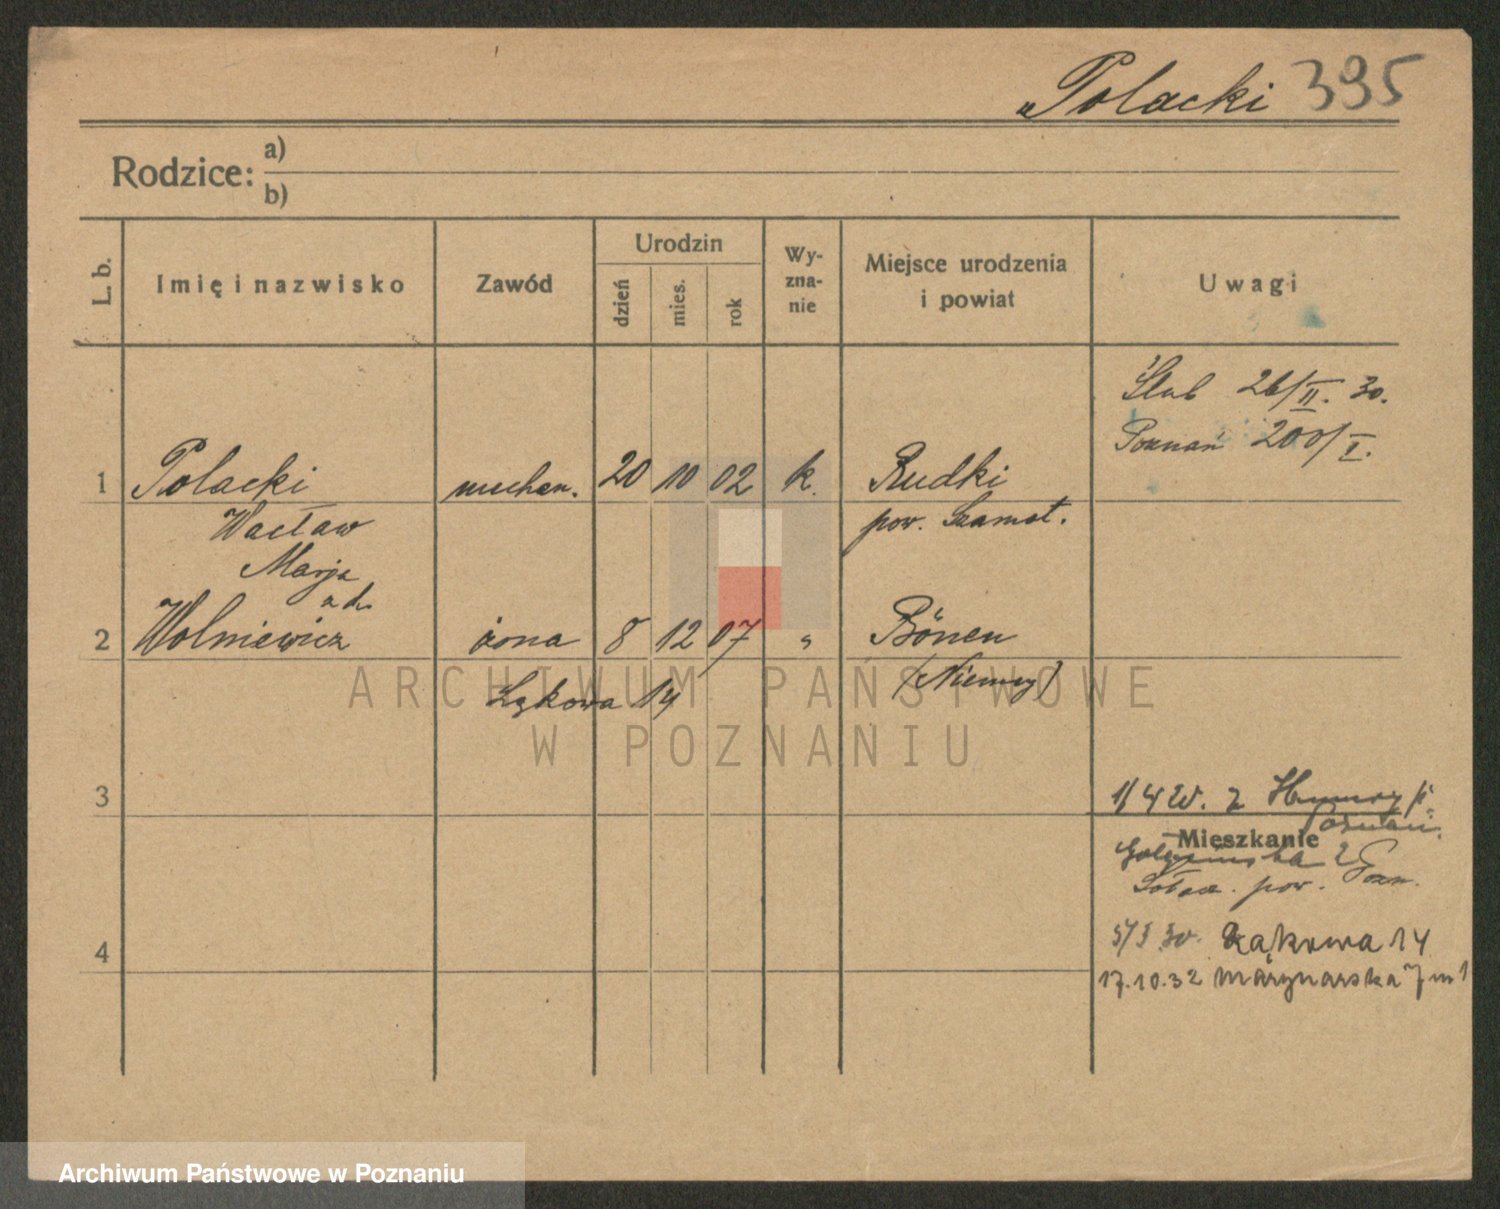 Polacki 395
Rodzice: a)
b)
L. b.
Imię i nazwisko
Zawód
Urodzin
dzień
mies.
rok
Wy-
zna-
nie
Miejsce urodzenia
i powiat
Uwagi
Ślub 26/II. 30.
Poznań 200/I.
1 Polacki mechan. 20 10 02 k. Rudki
Wacław pow. Szamot.
Marja
z d.
2 Wolniewicz żona 8 12 07 " Bönen
Łąkowa 14 (Niemcy)
3
1/4 W. z
Poznań.
Mieszkanie
Sołacz. pow. Pozn.
4
30. Łąkowa 14
17.10.32 Marynarska 7 m 1
ARCHIWUM PAŃSTWOWE
W POZNANIU
Archiwum Państwowe w Poznaniu